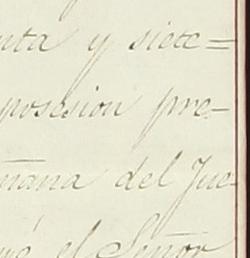 nta y siete=
posesion pre-
ñana del Jue-
el Señor